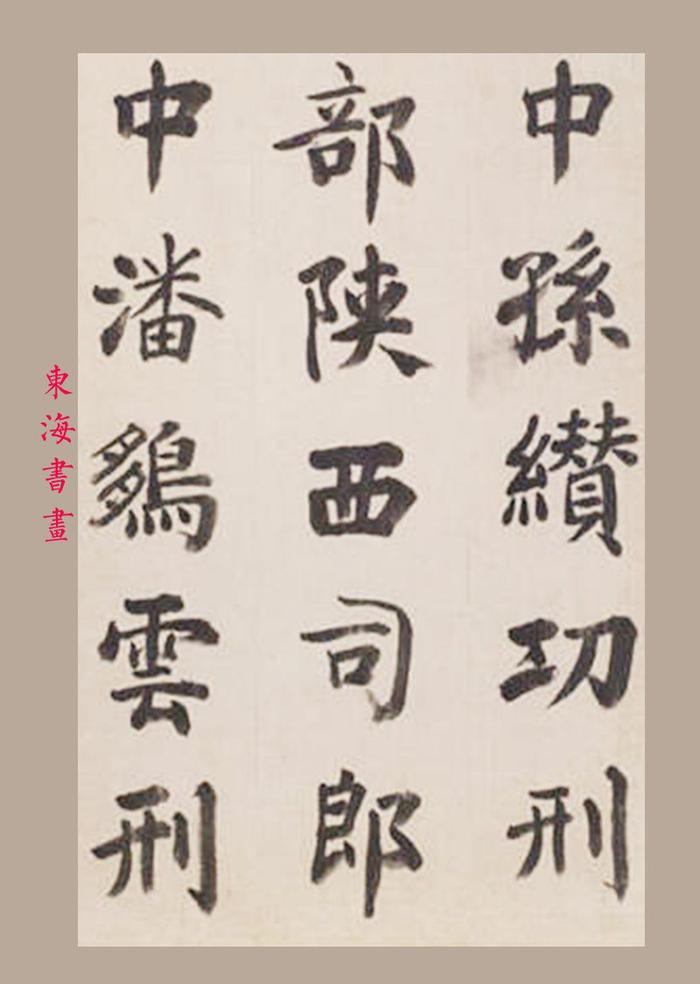 中孫纉功刑
部陝西司郎
中潘鶵雲刑
東海書畫